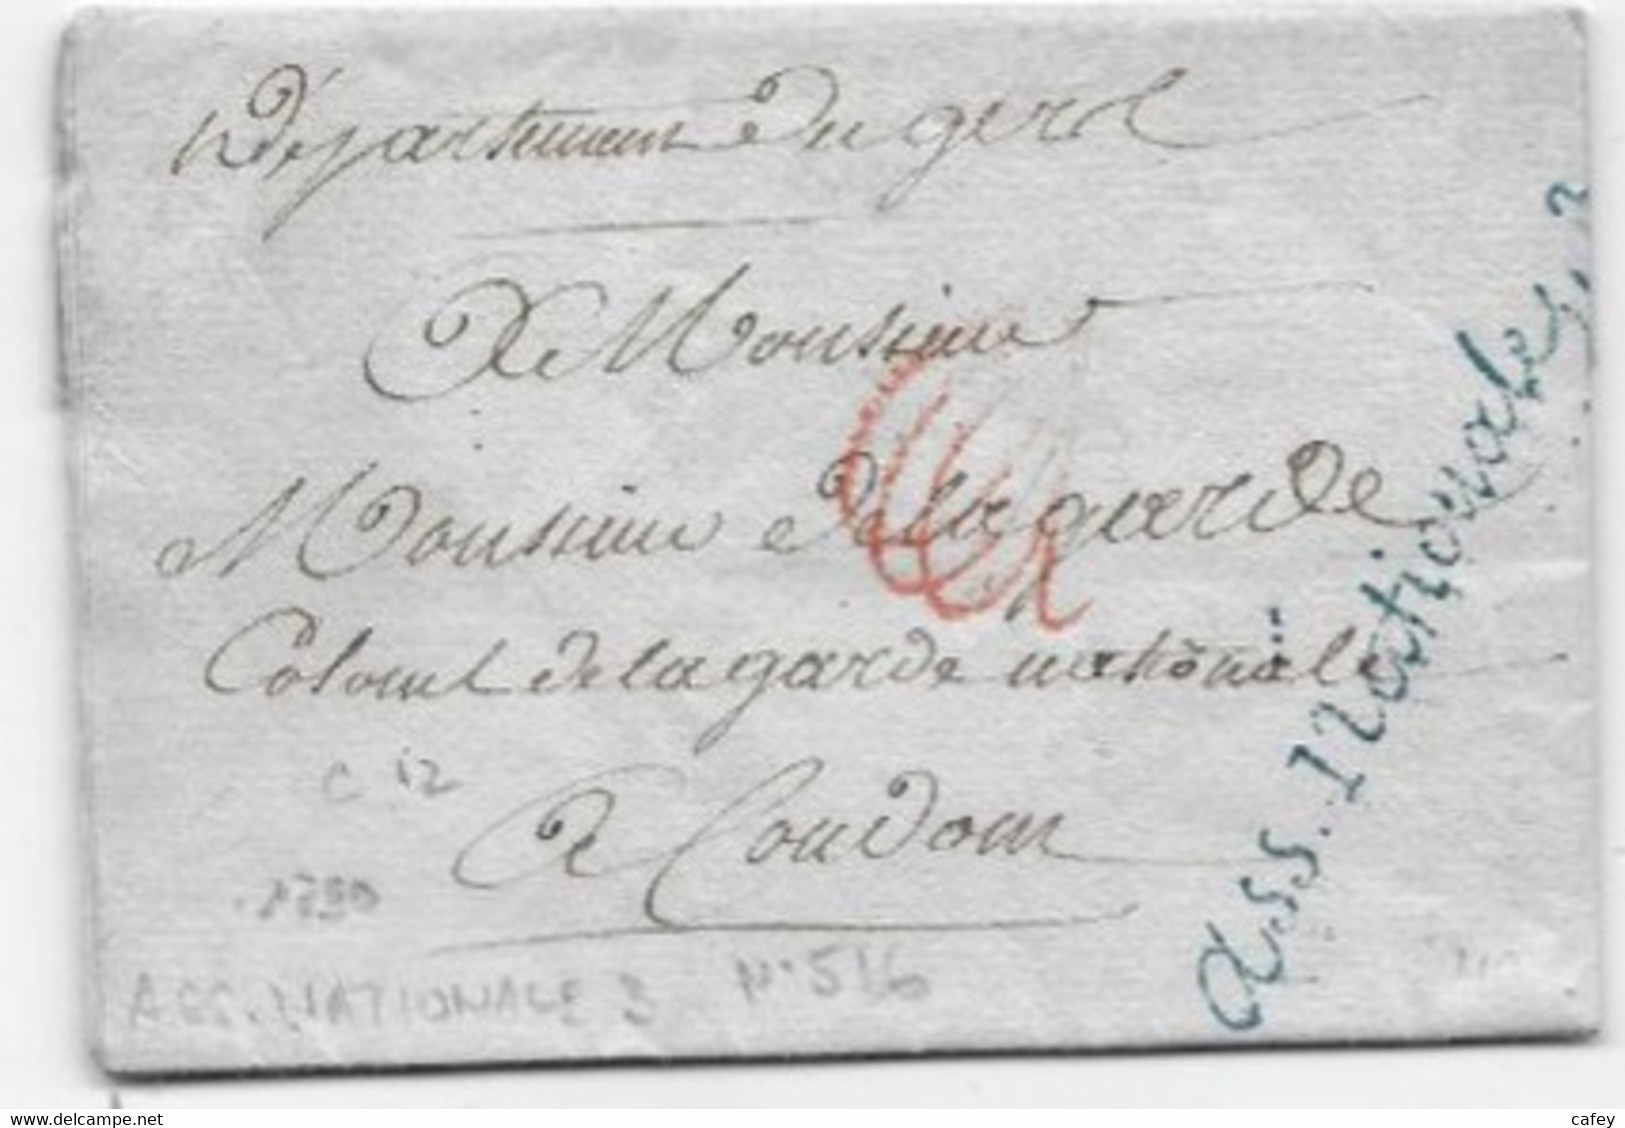 Département du gers
A Monsieur
Monsieur de lagarde
Colonel de la garde nationale
A Condom
Ass. Nationale
C 12
1790
ASS. NATIONALE 3 N° 516
www.delcampe.net
cafey